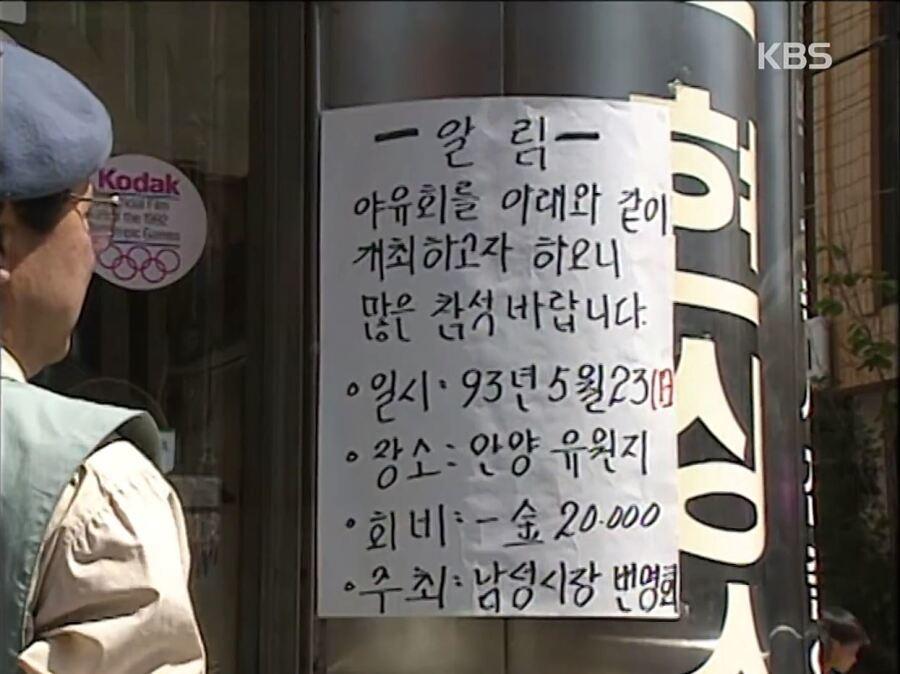 KBS
Kodak
ー알 림ー
야유회를 아래와 같이
개최하고자 하오니
많은 참석 바랍니다.
•일시: 93년 5월 23(日
•장소: 안양 유원지
•회비: 一金 20.000
•주최: 남성시장 번영회